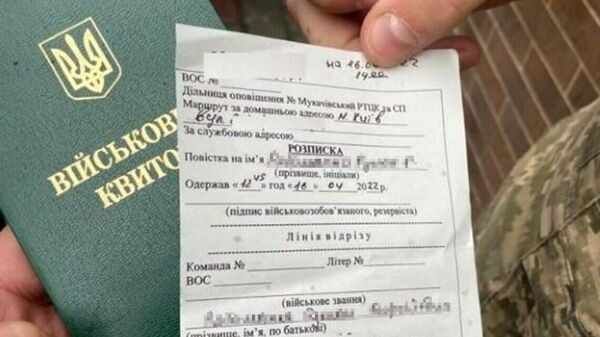 ВІЙСЬКОВИ
КВИТО
на 16.0 22
14.00
ВОС №
Дільниця оповіщення № Мукачівський РТЦК та СП
Маршрут за домашньою адресою м. Київ
вул
За службовою адресою
РОЗПИСКА
Повістка на ім'я
(прізвище, ініціали)
Одержав «12 45» год «16» 04 2022 р.
(підпис військовозобов'язаного, резервіста)
Лінія відрізу
Команда № Літер №
ВОС
(військове звання)
(прізвище, ім'я, по батькові)